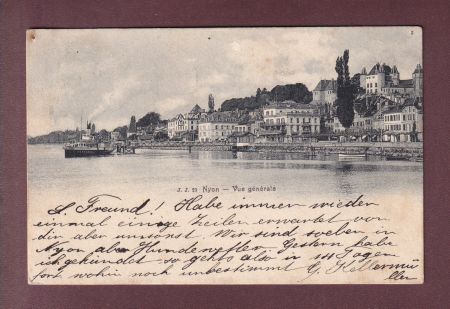 J. J. 29 Nyon — Vue générale
L. Freund! Habe immer wieder
einmal einige Zeilen erwartet von
dir aber umsonst. Wir sind soeben in
Nyon aber Hundewetter. Gestern habe
ich gekündet - so gehts also in 14 Tagen
fort wohin noch unbestimmt G. Kellermü
ller